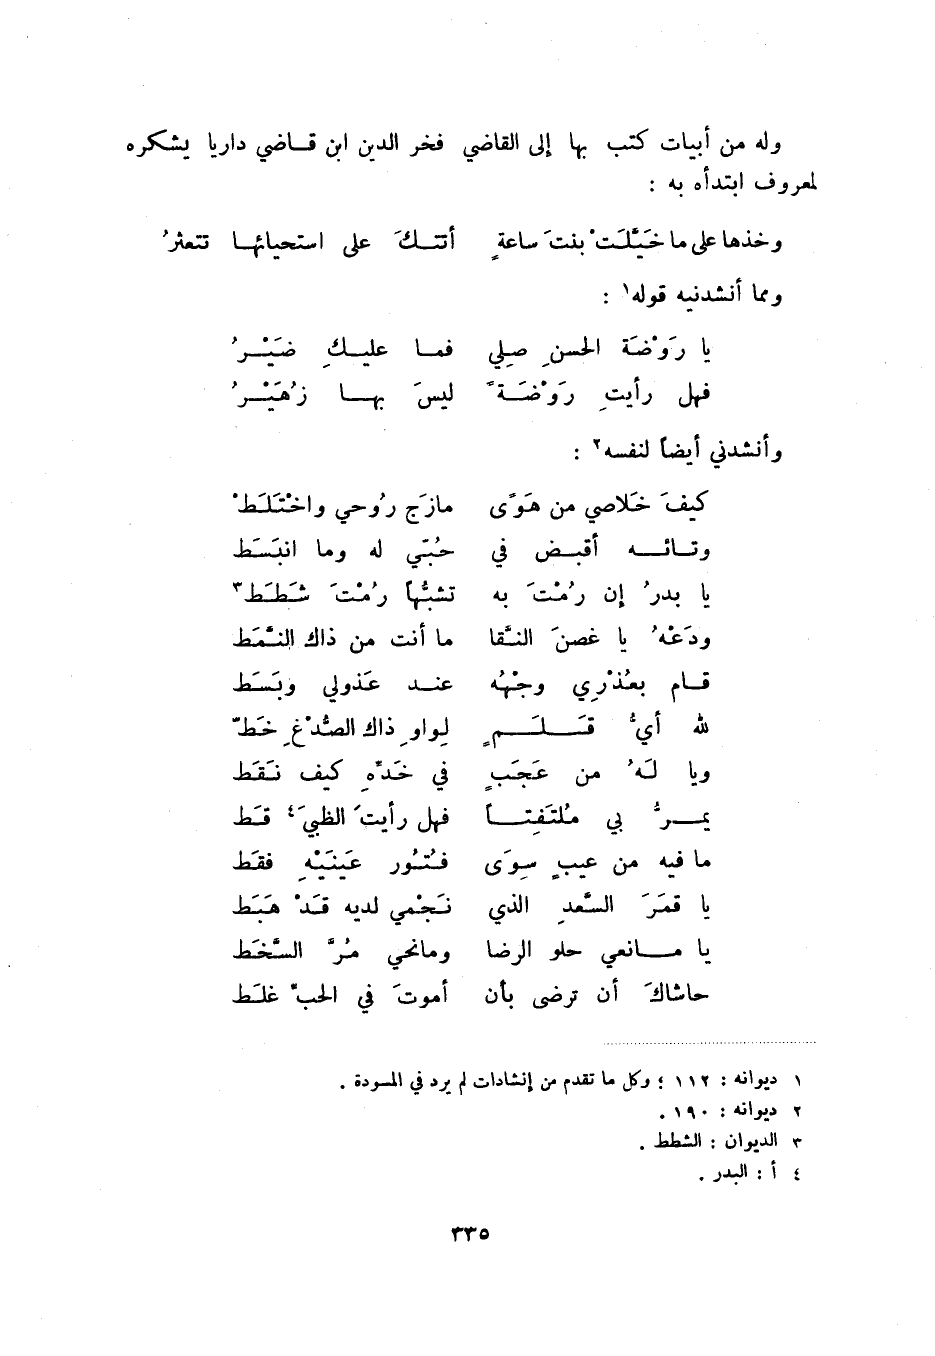 وله من أبيات كتب بها إلى القاضي فخر الدين ابن قاضي داريا يشكره
لمعروف ابتدأه به :
وخذها على ما خَيَّلَتْ بنتَ ساعةٍ أتتكَ على استحيائها تتعثرُ
ومما أنشدنيه قوله١ :
يا رَوْضَة الحسنِ صِلِي فما عليكِ ضَيْرُ
فهل رأيتِ رَوْضَةً ليسَ بها زُهَيْرُ
وأنشدني أيضاً لنفسه٢ :
كيفَ خَلاصي من هَوًى مازَج رُوحي واخْتَلَطْ
وتائه أقبض في حُبّي له وما انبَسَط
يا بدرُ إن رُمْتَ به تشبُّهاً رُمْتَ شَطَط٣
ودَعْهُ يا غصنَ النَّقا ما أنت من ذاك النَّمَط
قام بعُذْرِي وجْهُه عند عَذولي وبَسَط
لله أيُّ قَلَمٍ لِواوِ ذاك الصُّدْغِ خَطّ
ويا لَهُ من عَجَبٍ في خَدّهِ كيف نَقَط
يمرُّ بي مُلتَفِتاً فهل رأيتَ الظبيَ٤ قَط
ما فيه من عيبٍ سِوَى فُتُور عَينَيْهِ فقَط
يا قمَرَ السَّعدِ الذي نَجْمي لديه قَدْ هَبَط
يا مانعي حلو الرضا ومانحي مُرَّ السَّخَط
حاشاكَ أن ترضى بأن أموتَ في الحبّ غلَط
١ ديوانه : ١١٢ ؛ وكل ما تقدم من إنشادات لم يرد في المسودة .
٢ ديوانه : ١٩٠ .
٣ الديوان : الشطط .
٤ أ : البدر .
٣٣٥